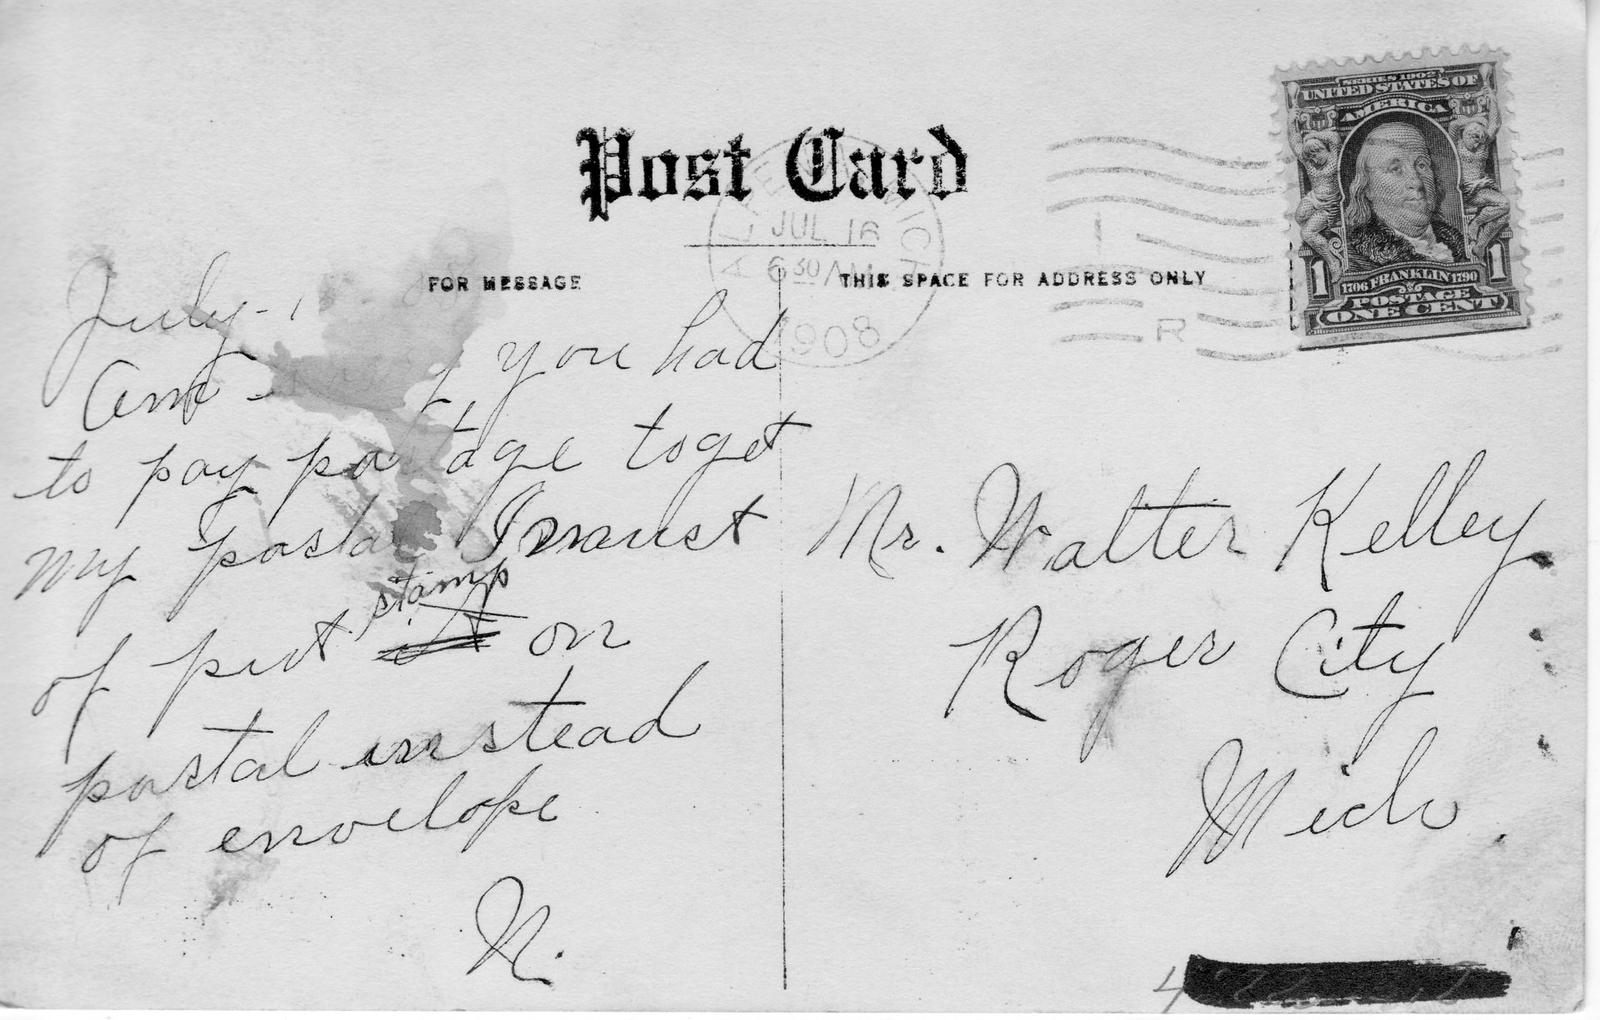 Post Card
ALPENA, MICH
JUL 16
6 30 AM
1908
R
SERIES 1902
UNITED STATES OF
AMERICA
1 1
1706 FRANKLIN 1790
POSTAGE
ONE CENT
FOR MESSAGE
THIS SPACE FOR ADDRESS ONLY
July -
Am you had
to pay postage to get
my postal I must
of put stamp on
postal instead
of envelope
N.
Mr. Walter Kelley
Roger City
Mich.